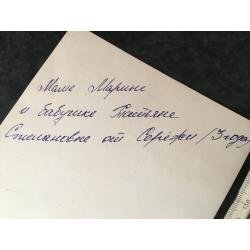 Маме Марине
и бабушке Татьяне
Степановне от Серёжи /3 года/